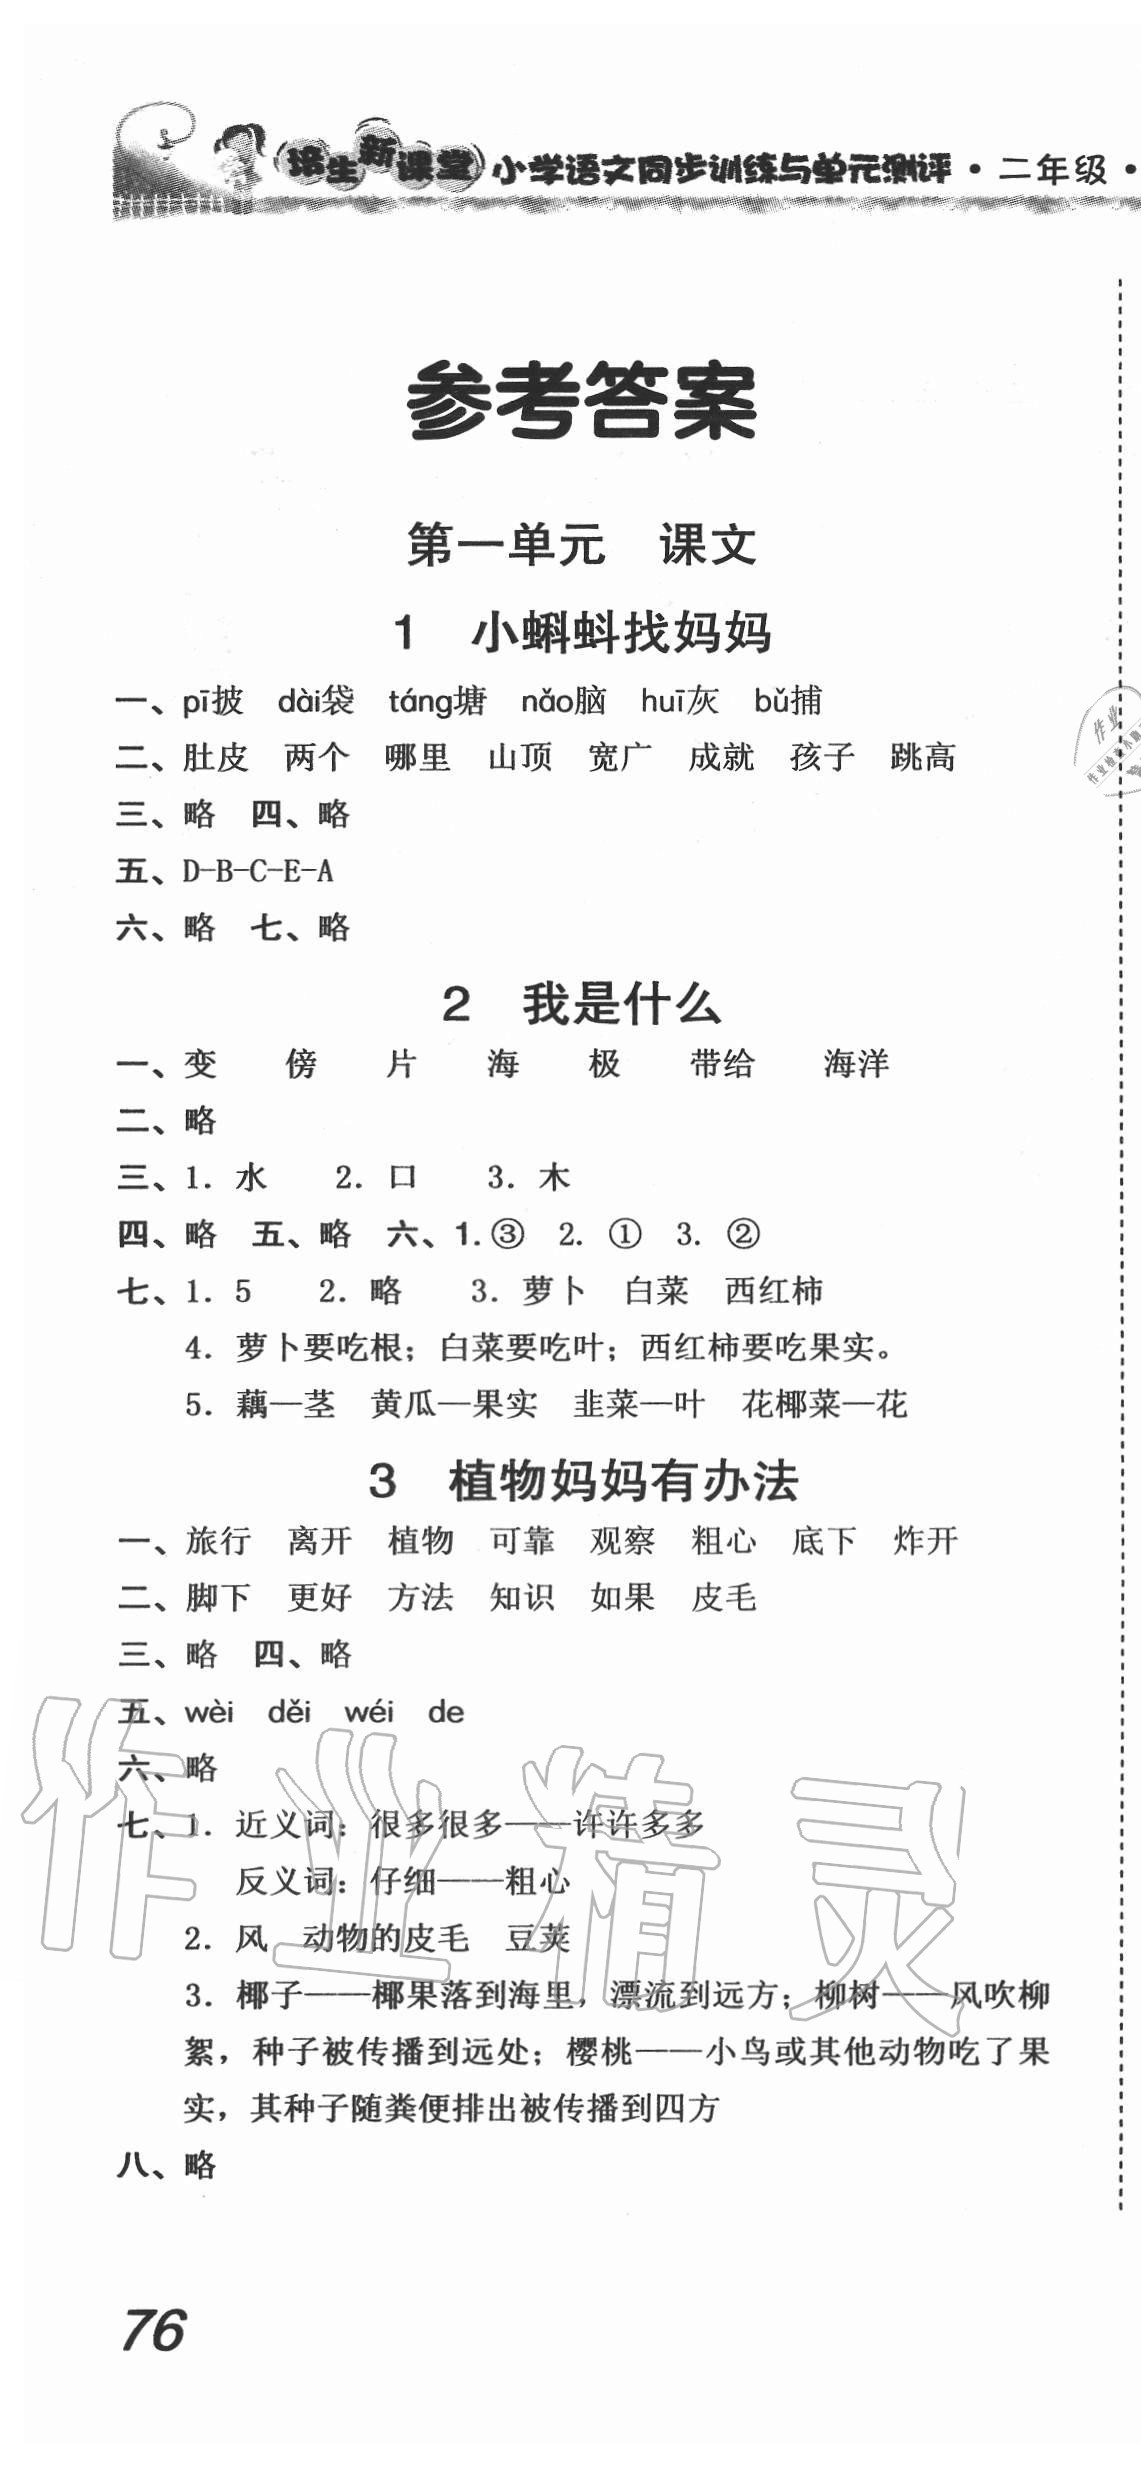 培生新课堂 小学语文同步训练与单元测评·二年级·
参考答案
第一单元 课文
1 小蝌蚪找妈妈
一、pī披 dài袋 táng塘 nǎo脑 huī灰 bǔ捕
二、肚皮 两个 哪里 山顶 宽广 成就 孩子 跳高
三、略 四、略
五、D-B-C-E-A
六、略 七、略
2 我是什么
一、变 傍 片 海 极 带给 海洋
二、略
三、1. 水 2. 口 3. 木
四、略 五、略 六、1. ③ 2. ① 3. ②
七、1. 5 2. 略 3. 萝卜 白菜 西红柿
4. 萝卜要吃根；白菜要吃叶；西红柿要吃果实。
5. 藕—茎 黄瓜—果实 韭菜—叶 花椰菜—花
3 植物妈妈有办法
一、旅行 离开 植物 可靠 观察 粗心 底下 炸开
二、脚下 更好 方法 知识 如果 皮毛
三、略 四、略
五、wèi děi wéi de
六、略
七、1. 近义词：很多很多——许许多多
反义词：仔细——粗心
2. 风 动物的皮毛 豆荚
3. 椰子——椰果落到海里，漂流到远方；柳树——风吹柳
絮，种子被传播到远处；樱桃——小鸟或其他动物吃了果
实，其种子随粪便排出被传播到四方
八、略
76
作业精灵
作业